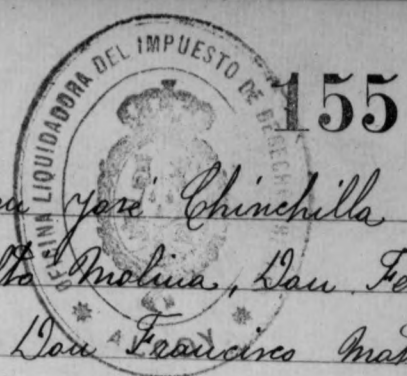 OFICINA LIQUIDADORA DEL IMPUESTO DE DERECHOS
155
José Chinchilla
Molina, Don Fe
Don Francisco Mat